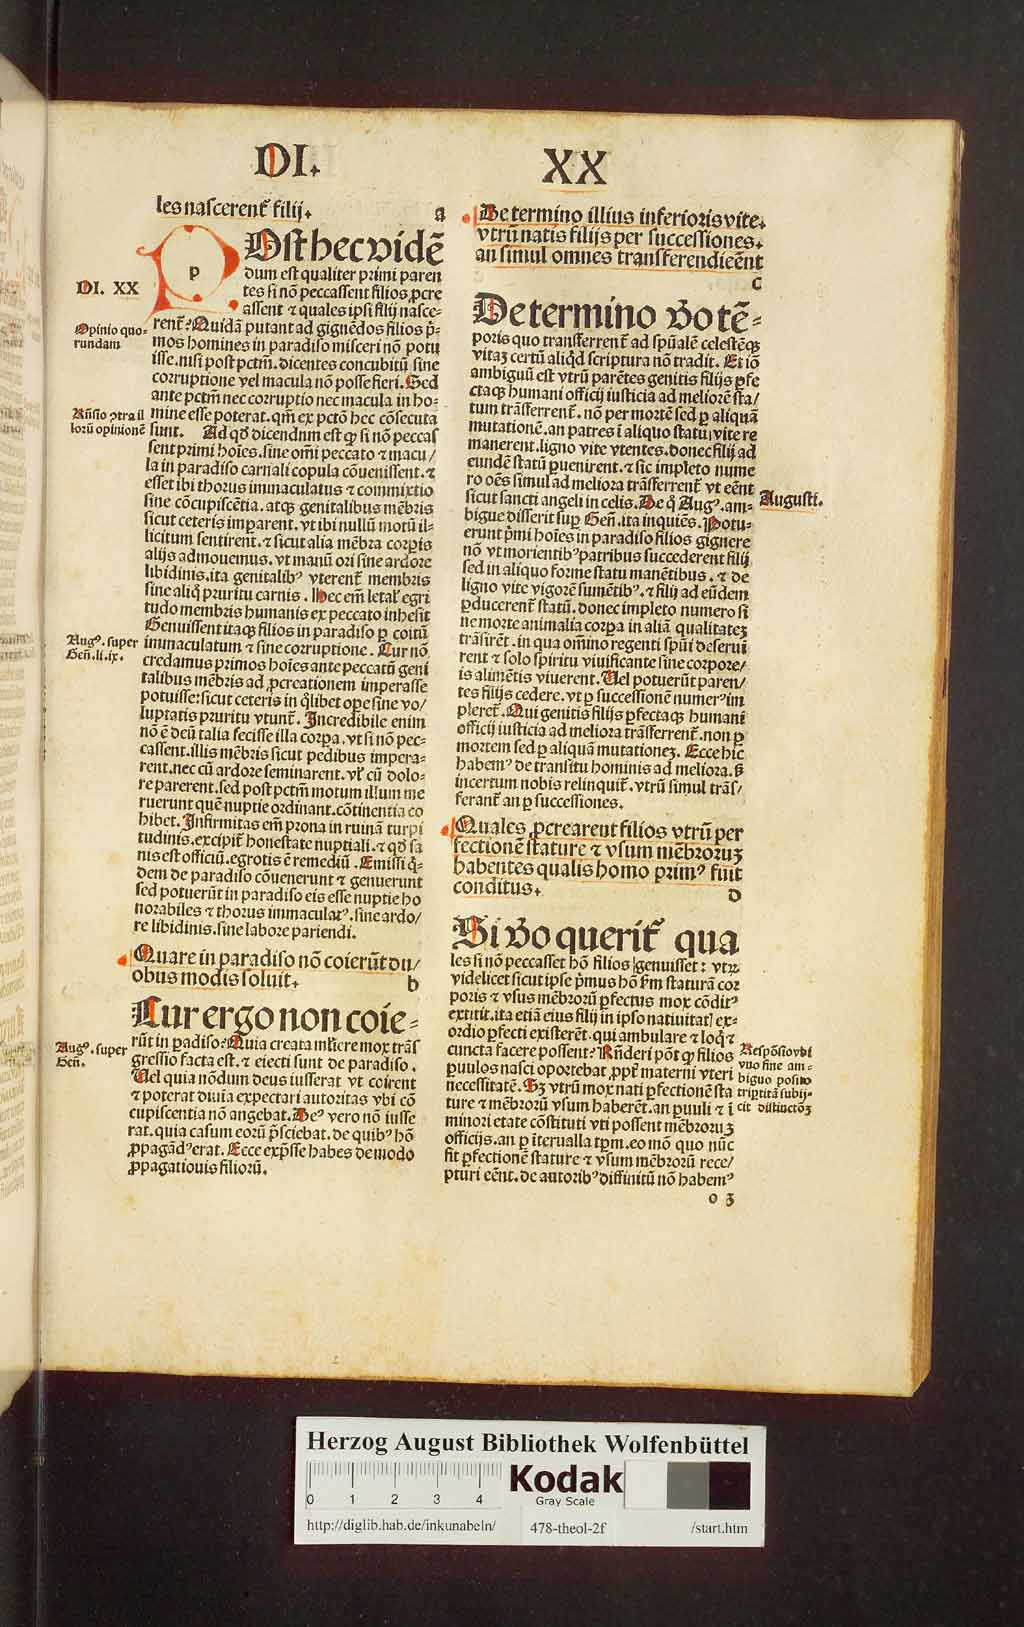 DI.
XX
les nascerent̃ filij.
a
DI. XX
p
Ost hec vidē
dum est qualiter primi paren
tes si nō peccassent filios ꝓcre
assent ⁊ quales ipsi filij nasce-
Opinio quo-
rundam
rent̃? Quidā putant ad gignēdos filios p̄-
mos homines in paradiso misceri nō potu
isse. nisi post pctm̄. dicentes concubitū sine
corruptione vel macula nō posse fieri. Sed
ante pctm̄ nec corruptio nec macula in ho-
Rñsio ↄtra il
lorū opinionē
mine esse poterat. qm̄ ex pctō hec cōsecuta
sunt. Ad qd̄ dicendum est ꝙ si nō peccas
sent primi hoīes. sine om̄i peccato ⁊ macu/
la in paradiso carnali copula cōuenissent. ⁊
esset ibi thorus immaculatus ⁊ commixtio
sine cōcupiscētia. atqꝫ genitalibus mēbris
sicut ceteris imparent. vt ibi nullū motū il-
licitum sentirent. ⁊ sicut alia mēbra corꝑis
alijs admouemus. vt manū ori sine ardore
libidinis. ita genitalibꝰ vterent̃ membris
sine aliq̄ pruritu carnis. Hec em̄ letal' egri
tudo membris humanis ex peccato inhesit
Augꝰ. super
Geñ. li. ix.
Genuissent itaqꝫ filios in paradiso ꝑ coitū
immaculatum ⁊ sine corruptione. Cur nō
credamus primos hoīes ante peccatū geni
talibus mēbris ad ꝓcreationem imperasse
potuisse: sicut ceteris in q̄libet ope sine vo/
luptatis pruritu vtunt̃. Incredibile enim
nō ē deū talia fecisse illa corꝑa. vt si nō pec-
cassent. illis mēbris sicut pedibus impera-
rent. nec cū ardore seminarent. vl' cū dolo-
re parerent. sed post pctm̄ motum illum me
ruerunt quē nuptie ordinant. cōtinentia co
hibet. Infirmitas em̄ prona in ruinā turpi
tudinis. excipit̃ honestate nuptiali. ⁊ qd̄ sa
nis est officiū. egrotis ē remediū. Emissi q̄-
dem de paradiso cōuenerunt ⁊ genuerunt
sed potuerūt in paradiso eis esse nuptie ho
norabiles ⁊ thorus immaculatꝰ. sine ardo/
re libidinis. sine labore pariendi.
Quare in paradiso nō coierūt du/
obus modis soluit.
b
Cur ergo non coie-
Augꝰ. super
Geñ.
rūt in ꝑadiso? Quia creata mulr̄iere mox trās
gressio facta est. ⁊ eiecti sunt de paradiso.
Vel quia nōdum deus iusserat vt coirent
⁊ poterat diuia expectari autoritas vbi cō
cupiscentia nō angebat. Deꝰ vero nō iusse
rat. quia casum eorū p̄sciebat. de quibꝰ hō
ꝓpagādꝰ erat. Ecce exp̄sse habes de modo
ꝓpagatiouis filiorū.
De termino illius inferioris vite.
vtrū natis filijs per successiones.
an simul omnes transferendi eēnt
c
De termino v̄o tē-
poris quo transferrent̃ ad spūalē celestēqꝫ
vitaꝫ certū aliqd̄ scriptura nō tradit. Et iō
ambiguū est vtrū parētes genitis filijs ꝑfe
ctaqꝫ humani officij iusticia ad meliorē sta/
tum trāsferrent̃. nō per mortē sed ꝑ aliquā
mutationē. an patres ī aliquo statu vite re
manerent. ligno vite vtentes. donec filij ad
eundē statū ꝑuenirent. ⁊ sic impleto nume
ro oēs simul ad meliora trāsferrent̃ vt eēnt
Augusti.
sicut sancti angeli in celis. De q̄ Augꝰ. am-
bigue disserit suꝑ Geñ. ita inquiēs. Potu-
erunt p̄mi hoīes in paradiso filios gignere
nō vt morientibꝰ patribus succederent filij
sed in aliquo forme statu manētibus. ⁊ de
ligno vite vigorē sumētibꝰ. ⁊ filij ad eūdem
ꝑducerent̃ statū. donec impleto numero si
ne morte animalia corꝑa in aliā qualitateꝫ
trāsirēt. in qua om̄ino regenti spūi deserui
rent ⁊ solo spiritu viuificante sine corpore/
is alimētis viuerent. Vel potuerūt paren/
tes filijs cedere. vt ꝑ successionē numerꝰ im
pleret̃. Qui genitis filijs ꝑfectaqꝫ humani
officij iusticia ad meliora trāsferrent̃. non ꝑ
mortem sed ꝑ aliquā mutationeꝫ. Ecce hic
habemꝰ de transitu hominis ad meliora. ꝫ
incertum nobis relinquit̃. vtrū simul trās/
ferant̃ an ꝑ successiones.
Quales ꝓcrearent filios vtrū per
fectionē stature ⁊ vsum mēbroruꝫ
habentes qualis homo primꝰ fuit
conditus.
d
Si v̄o querit̃ qua
les si nō peccasset hō filios genuisset: vtꝝ
videlicet sicut ipse p̄mus hō fm̄ staturā cor
poris ⁊ vsus mēbrorū ꝑfectus mox cōditꝰ
extitit. ita etiā eius filij in ipso natiuitat] ex-
ordio ꝑfecti existerēt. qui ambulare ⁊ loq̄ ⁊
Respōsio vbi
vno fine am-
biguo posito
tripertitā subij-
cit distinctōꝫ
cuncta facere possent? Rñderi pōt ꝙ filios
ꝑuulos nasci oportebat ꝓpt̃ materni vteri
necessitatē. Sꝫ vtrū mox nati ꝑfectionē sta
ture ⁊ mēbrorū vsum haberēt. an ꝑuuli ⁊ ī
minori etate cōstituti vti possent mēbroruꝫ
officijs. an ꝑ īterualla tꝑm. eo mō quo nūc
fit ꝑfectionē stature ⁊ vsum mēbrorū rece/
pturi eēnt. de autoribꝰ diffinitū nō habemꝰ
o 3
Herzog August Bibliothek Wolfenbüttel
0 1 2 3 4
Kodak
Gray Scale
http://diglib.hab.de/inkunabeln/
478-theol-2f
/start.htm